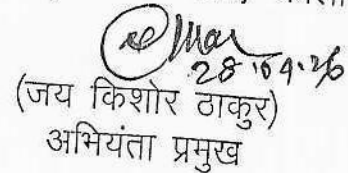 28.04.26
(जय किशोर ठाकुर)
अभियंता प्रमुख